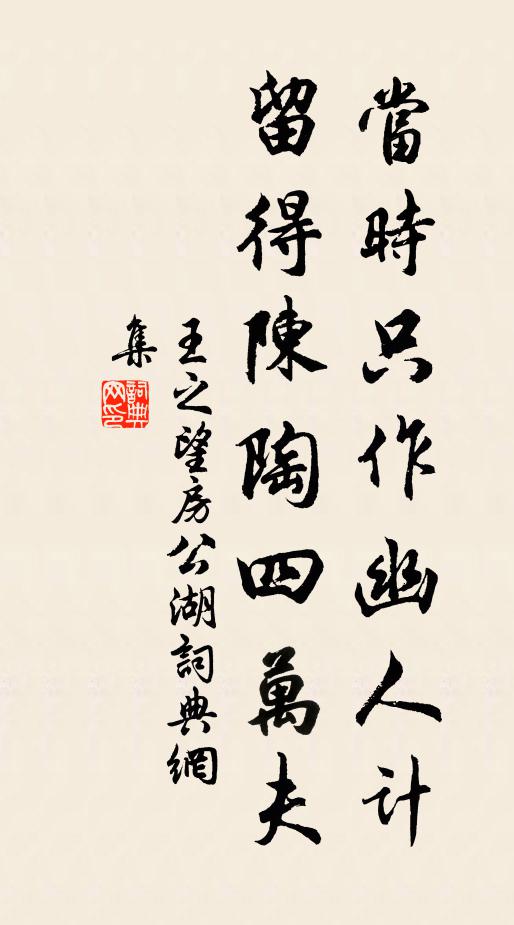 當時只作幽人計
留得陳陶四萬夫
王之望房公湖詞典網
集
詞典
网印